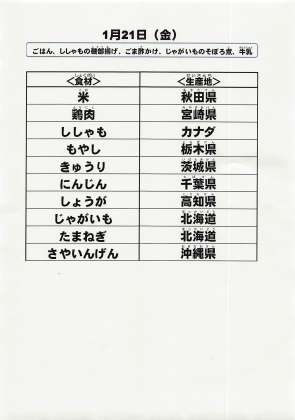 1月21日（金）
ごはん、ししゃもの磯部揚げ、ごま酢かけ、じゃがいものそぼろ煮、牛乳
＜食材＞ ＜生産地＞
米 秋田県
鶏肉 宮崎県
ししゃも カナダ
もやし 栃木県
きゅうり 茨城県
にんじん 千葉県
しょうが 高知県
じゃがいも 北海道
たまねぎ 北海道
さやいんげん 沖縄県